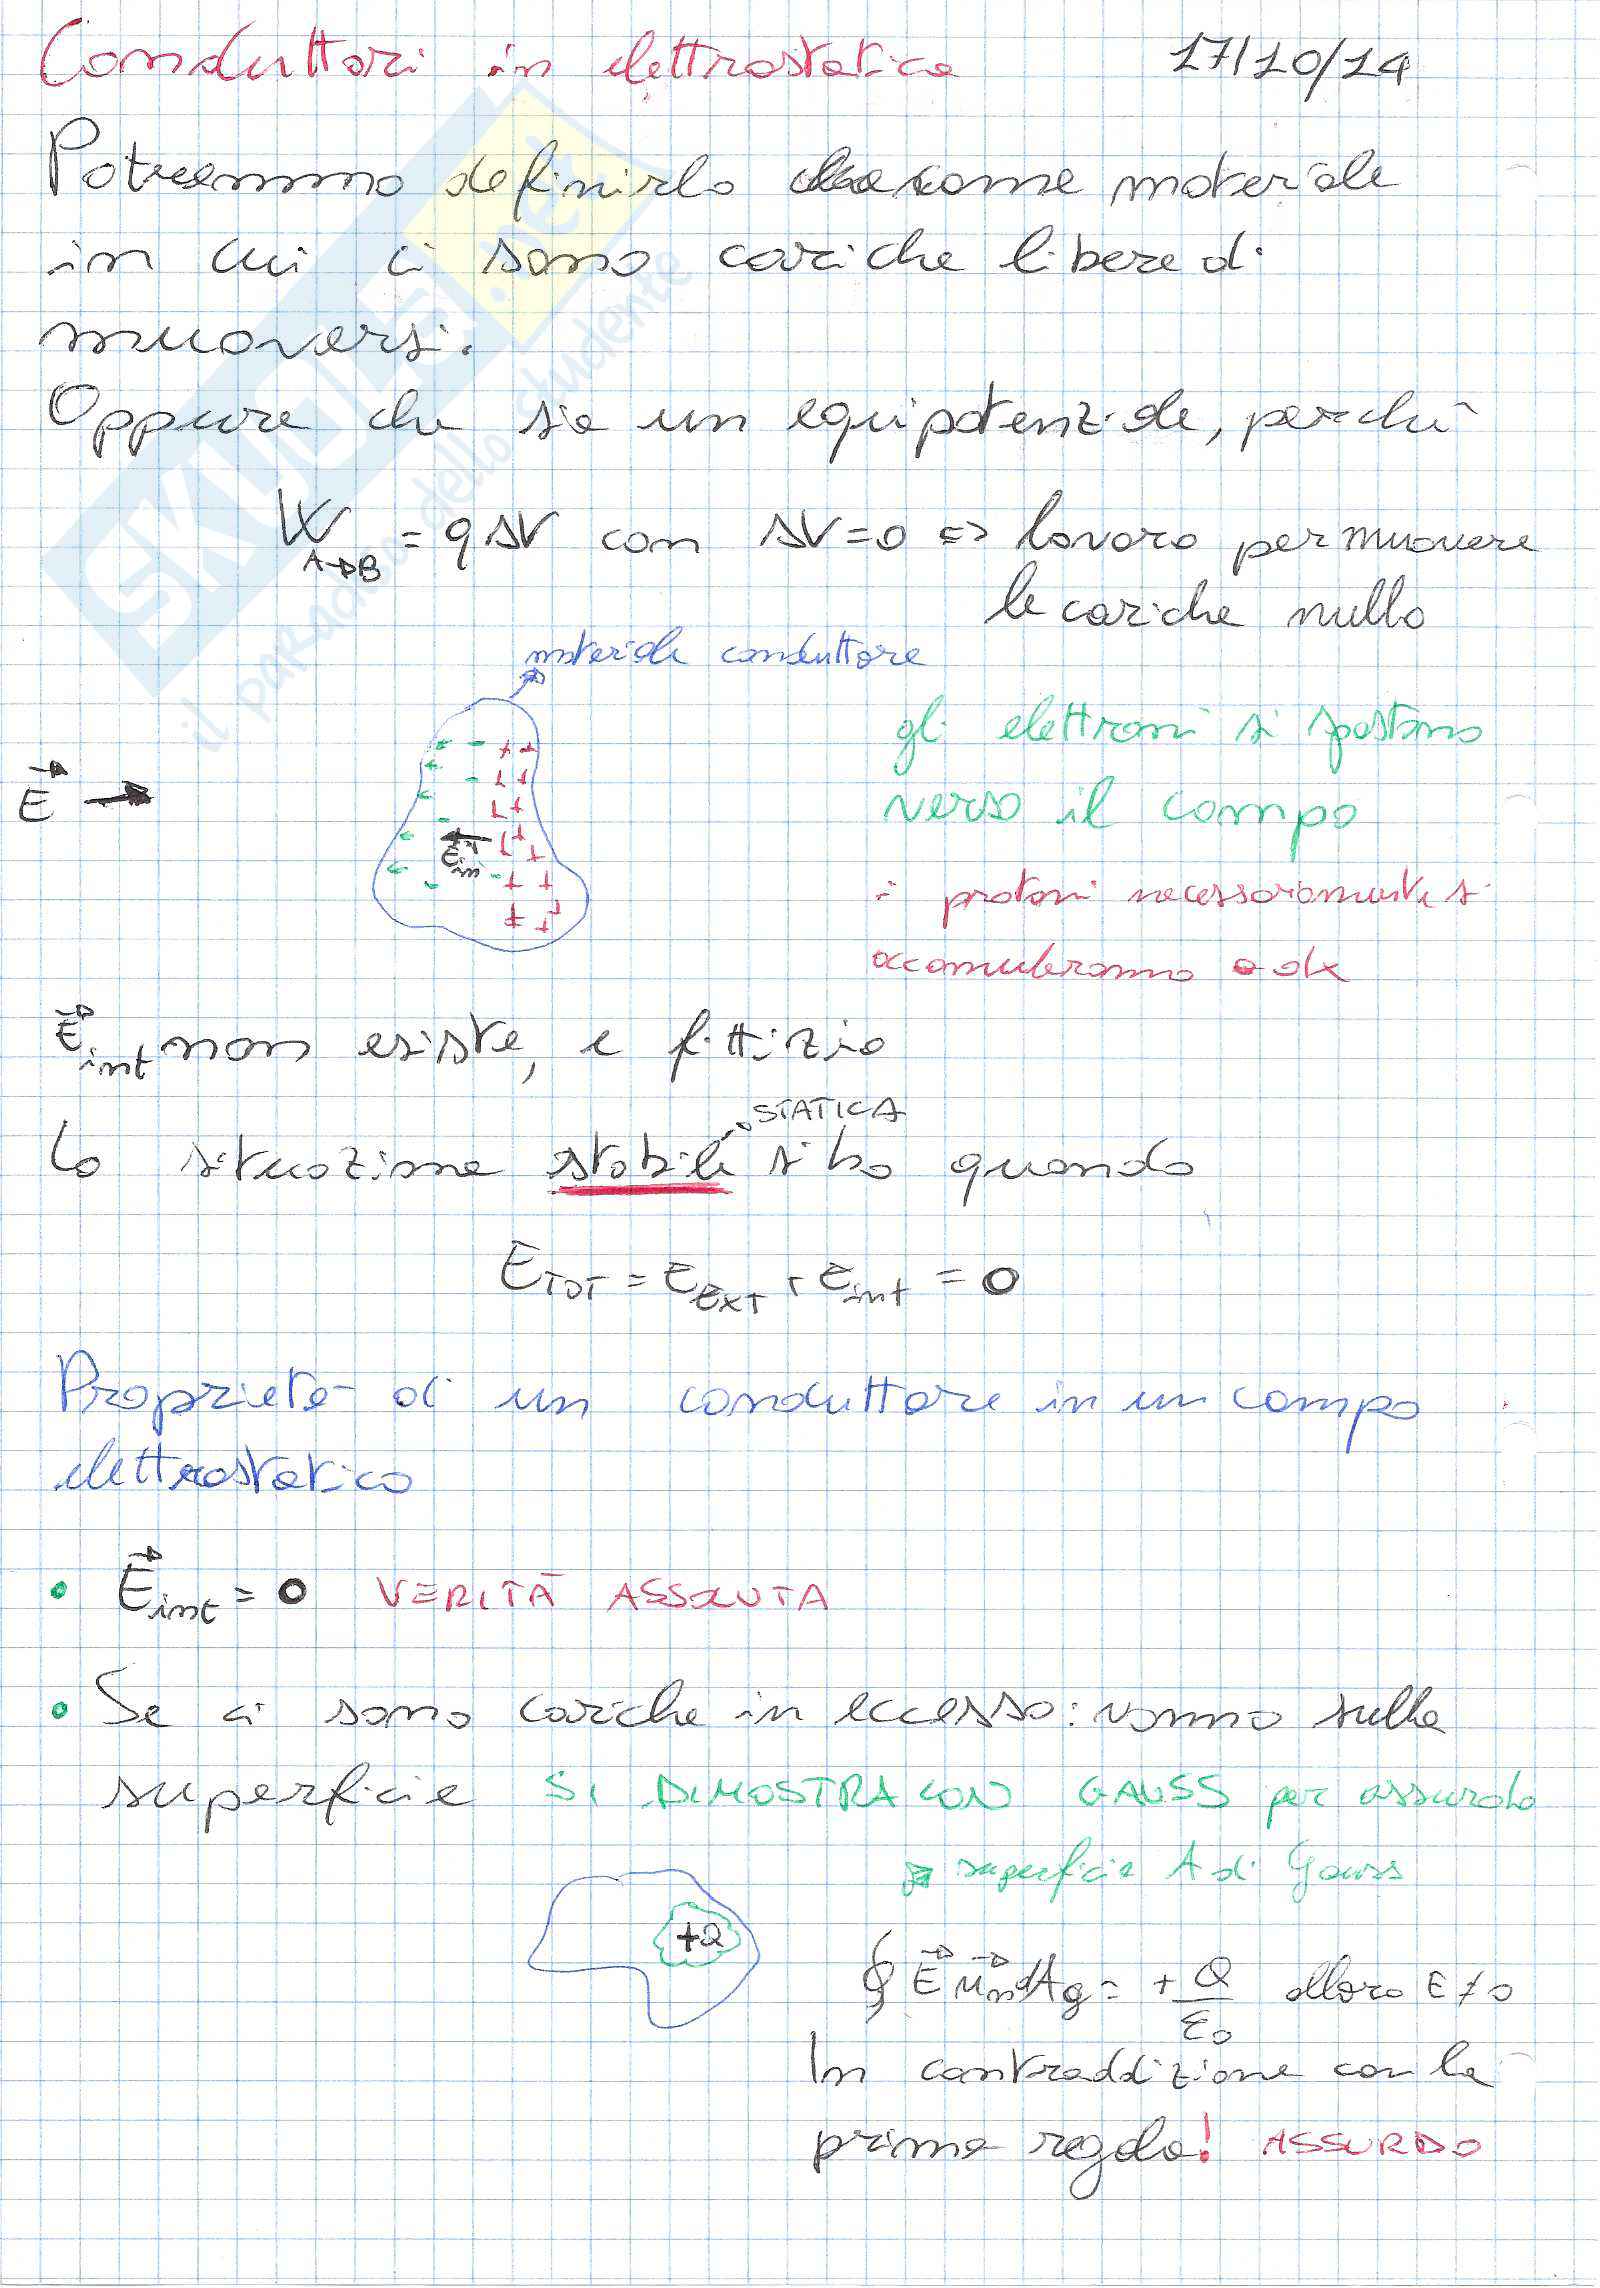 Conduttori in elettrostatica 17/10/14
Potremmo definirlo come materiale
in cui ci sono cariche libere di
muoversi.
Oppure che sia un equipotenziale, perché
W A→B = qΔV con ΔV=0 <=> lavoro per muovere
le cariche nullo
materiale conduttore
gli elettroni si spostano
verso il campo
E →
E in
i protoni necessariamente si
accumuleranno a dx
E int non esiste, è fittizio
STATICA
La situazione stabile si ha quando
E TOT = E EXT + E int = 0
Proprietà di un conduttore in un campo
elettrostatico
• E int = 0 VERITÀ ASSOLUTA
• Se ci sono cariche in eccesso: vanno sulla
superficie SI DIMOSTRA CON GAUSS per assurdo
superficie A di Gauss
+Q
∮ E u n dAg = +Q/ε0 allora E ≠ 0
In contraddizione con la
prima regola! ASSURDO
SKUOLA.net
il paradiso dello studente